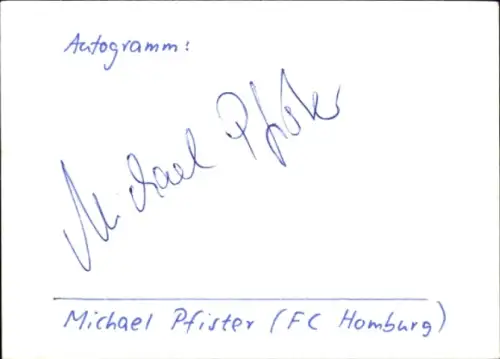 Autogramm:
Michael Pfister
Michael Pfister (FC Homburg)